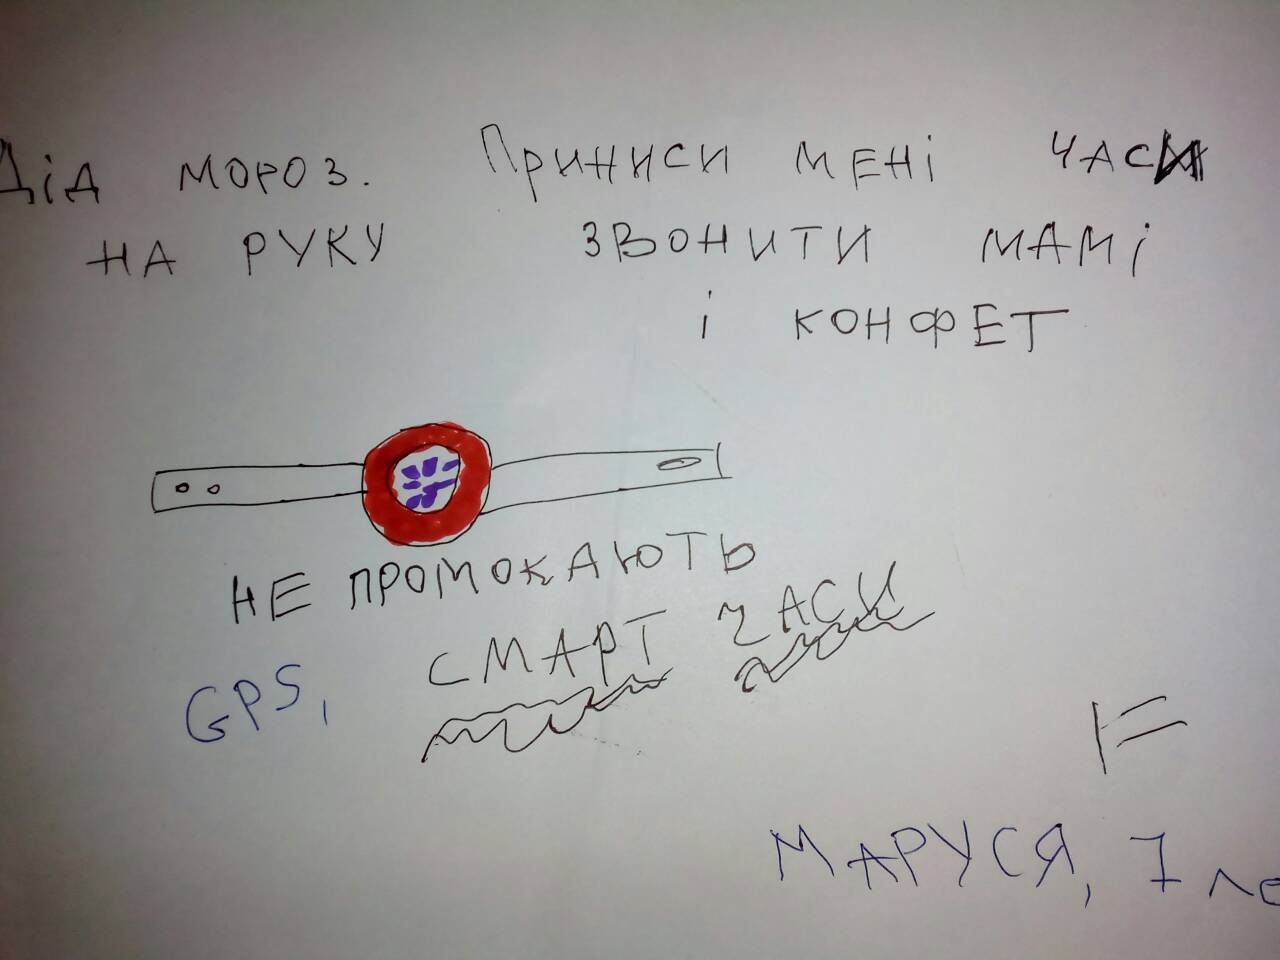 Дід мороз. Приниси мені часи
на руку звонити мамі
і конфет
не промокають
смарт часи
GPS,
Маруся, 7 ле